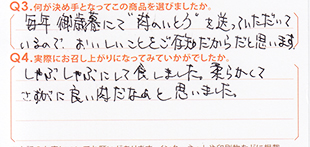 Q3.何が決め手となってこの商品を選びましたか。
毎年御歳暮にて"肉のいとう"を送っていただいて
いるので、おいしいことをご存知だからだと思います。
Q4.実際にお召し上がりになってみていかがでしたか。
しゃぶしゃぶにして食しました。柔らかくて
さすがに良い肉だなぁと思いました。